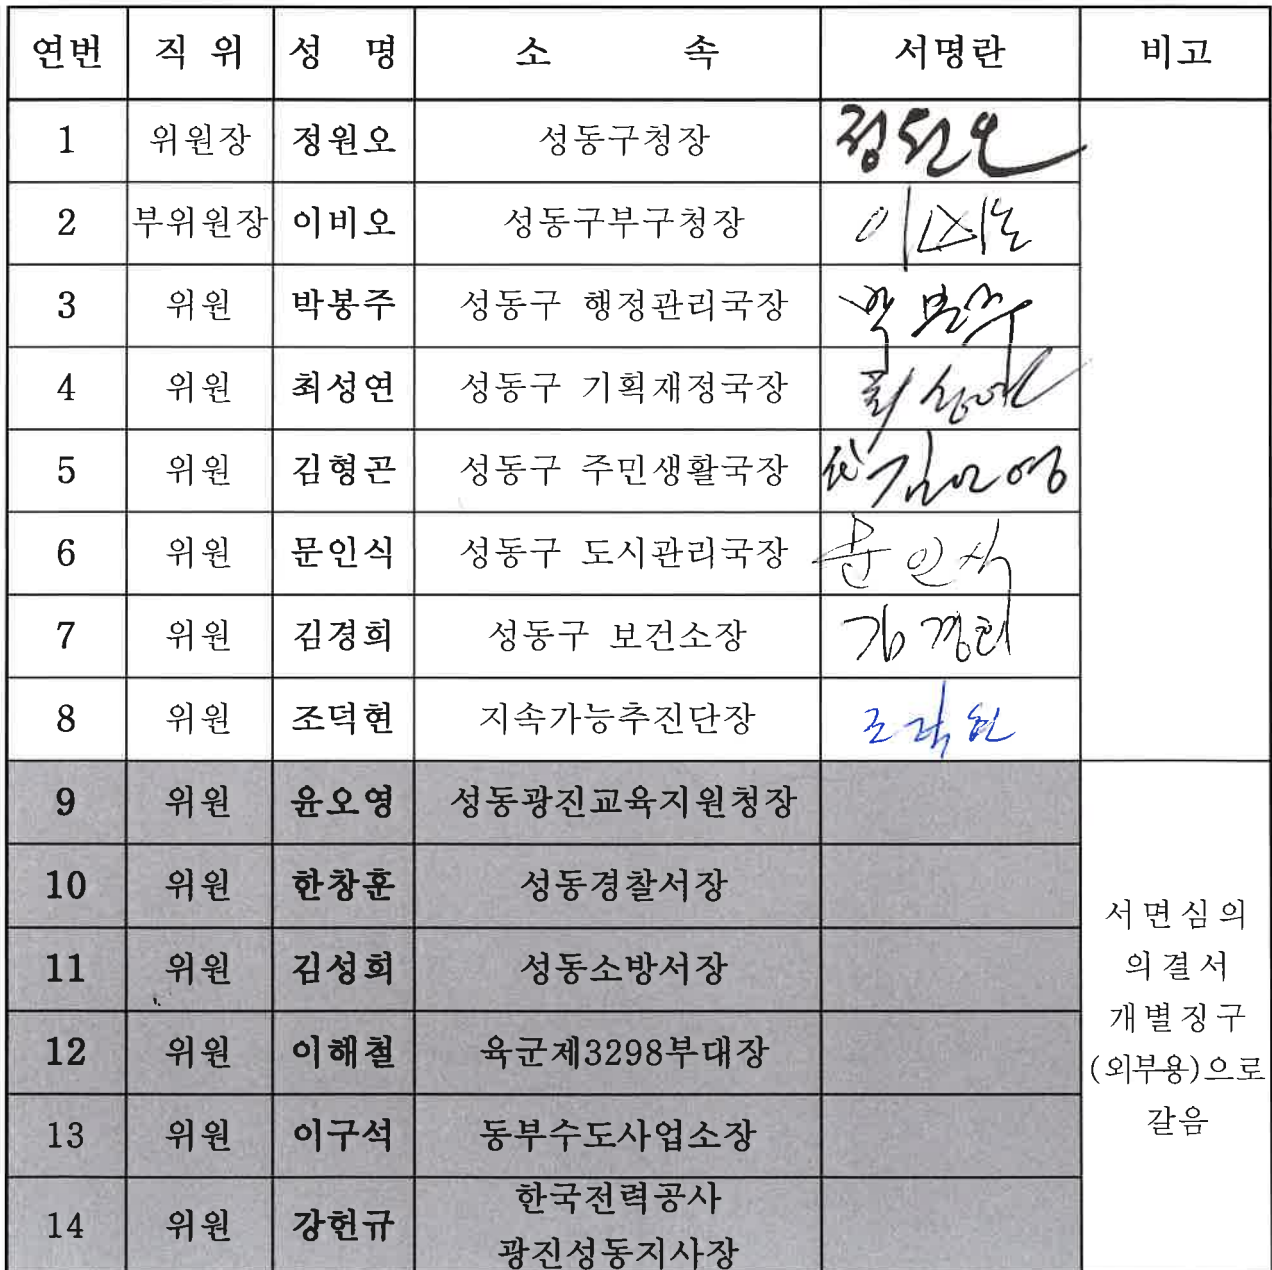 연번 직 위 성 명 소 속 서명란 비고
1 위원장 정원오 성동구청장 정원오
2 부위원장 이비오 성동구부구청장 이비오
3 위원 박봉주 성동구 행정관리국장 박봉주
4 위원 최성연 성동구 기획재정국장 최성연
5 위원 김형곤 성동구 주민생활국장 代김민영
6 위원 문인식 성동구 도시관리국장 문인식
7 위원 김경희 성동구 보건소장 김경희
8 위원 조덕현 지속가능추진단장 조덕현
9 위원 윤오영 성동광진교육지원청장
10 위원 한창훈 성동경찰서장
11 위원 김성회 성동소방서장
12 위원 이해철 육군제3298부대장
13 위원 이구석 동부수도사업소장
14 위원 강헌규 한국전력공사
광진성동지사장
서면심의
의결서
개별징구
(외부용)으로
갈음